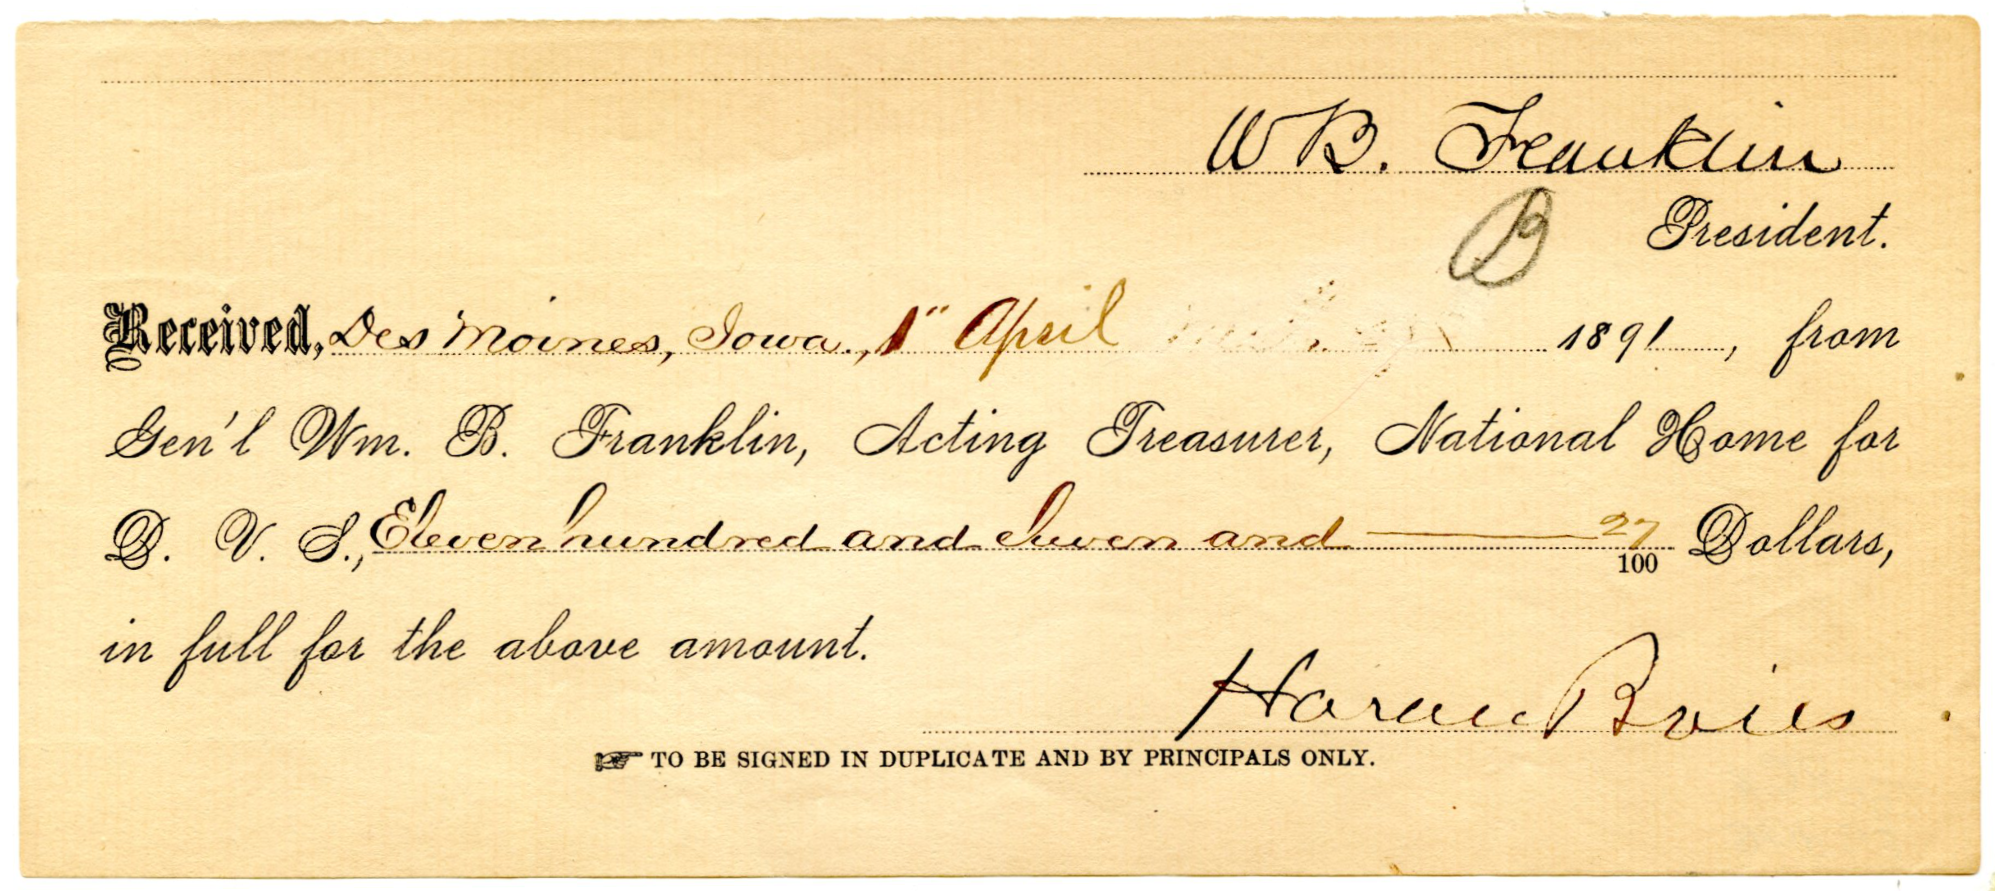 W B. Franklin
B
President.
Received, Des Moines, Iowa., 1" April 1891, from
Gen'l Wm. B. Franklin, Acting Treasurer, National Home for
D. V. S., Eleven hundred and Seven and 27/100 Dollars,
in full for the above amount.
Horace Boies
☞ TO BE SIGNED IN DUPLICATE AND BY PRINCIPALS ONLY.